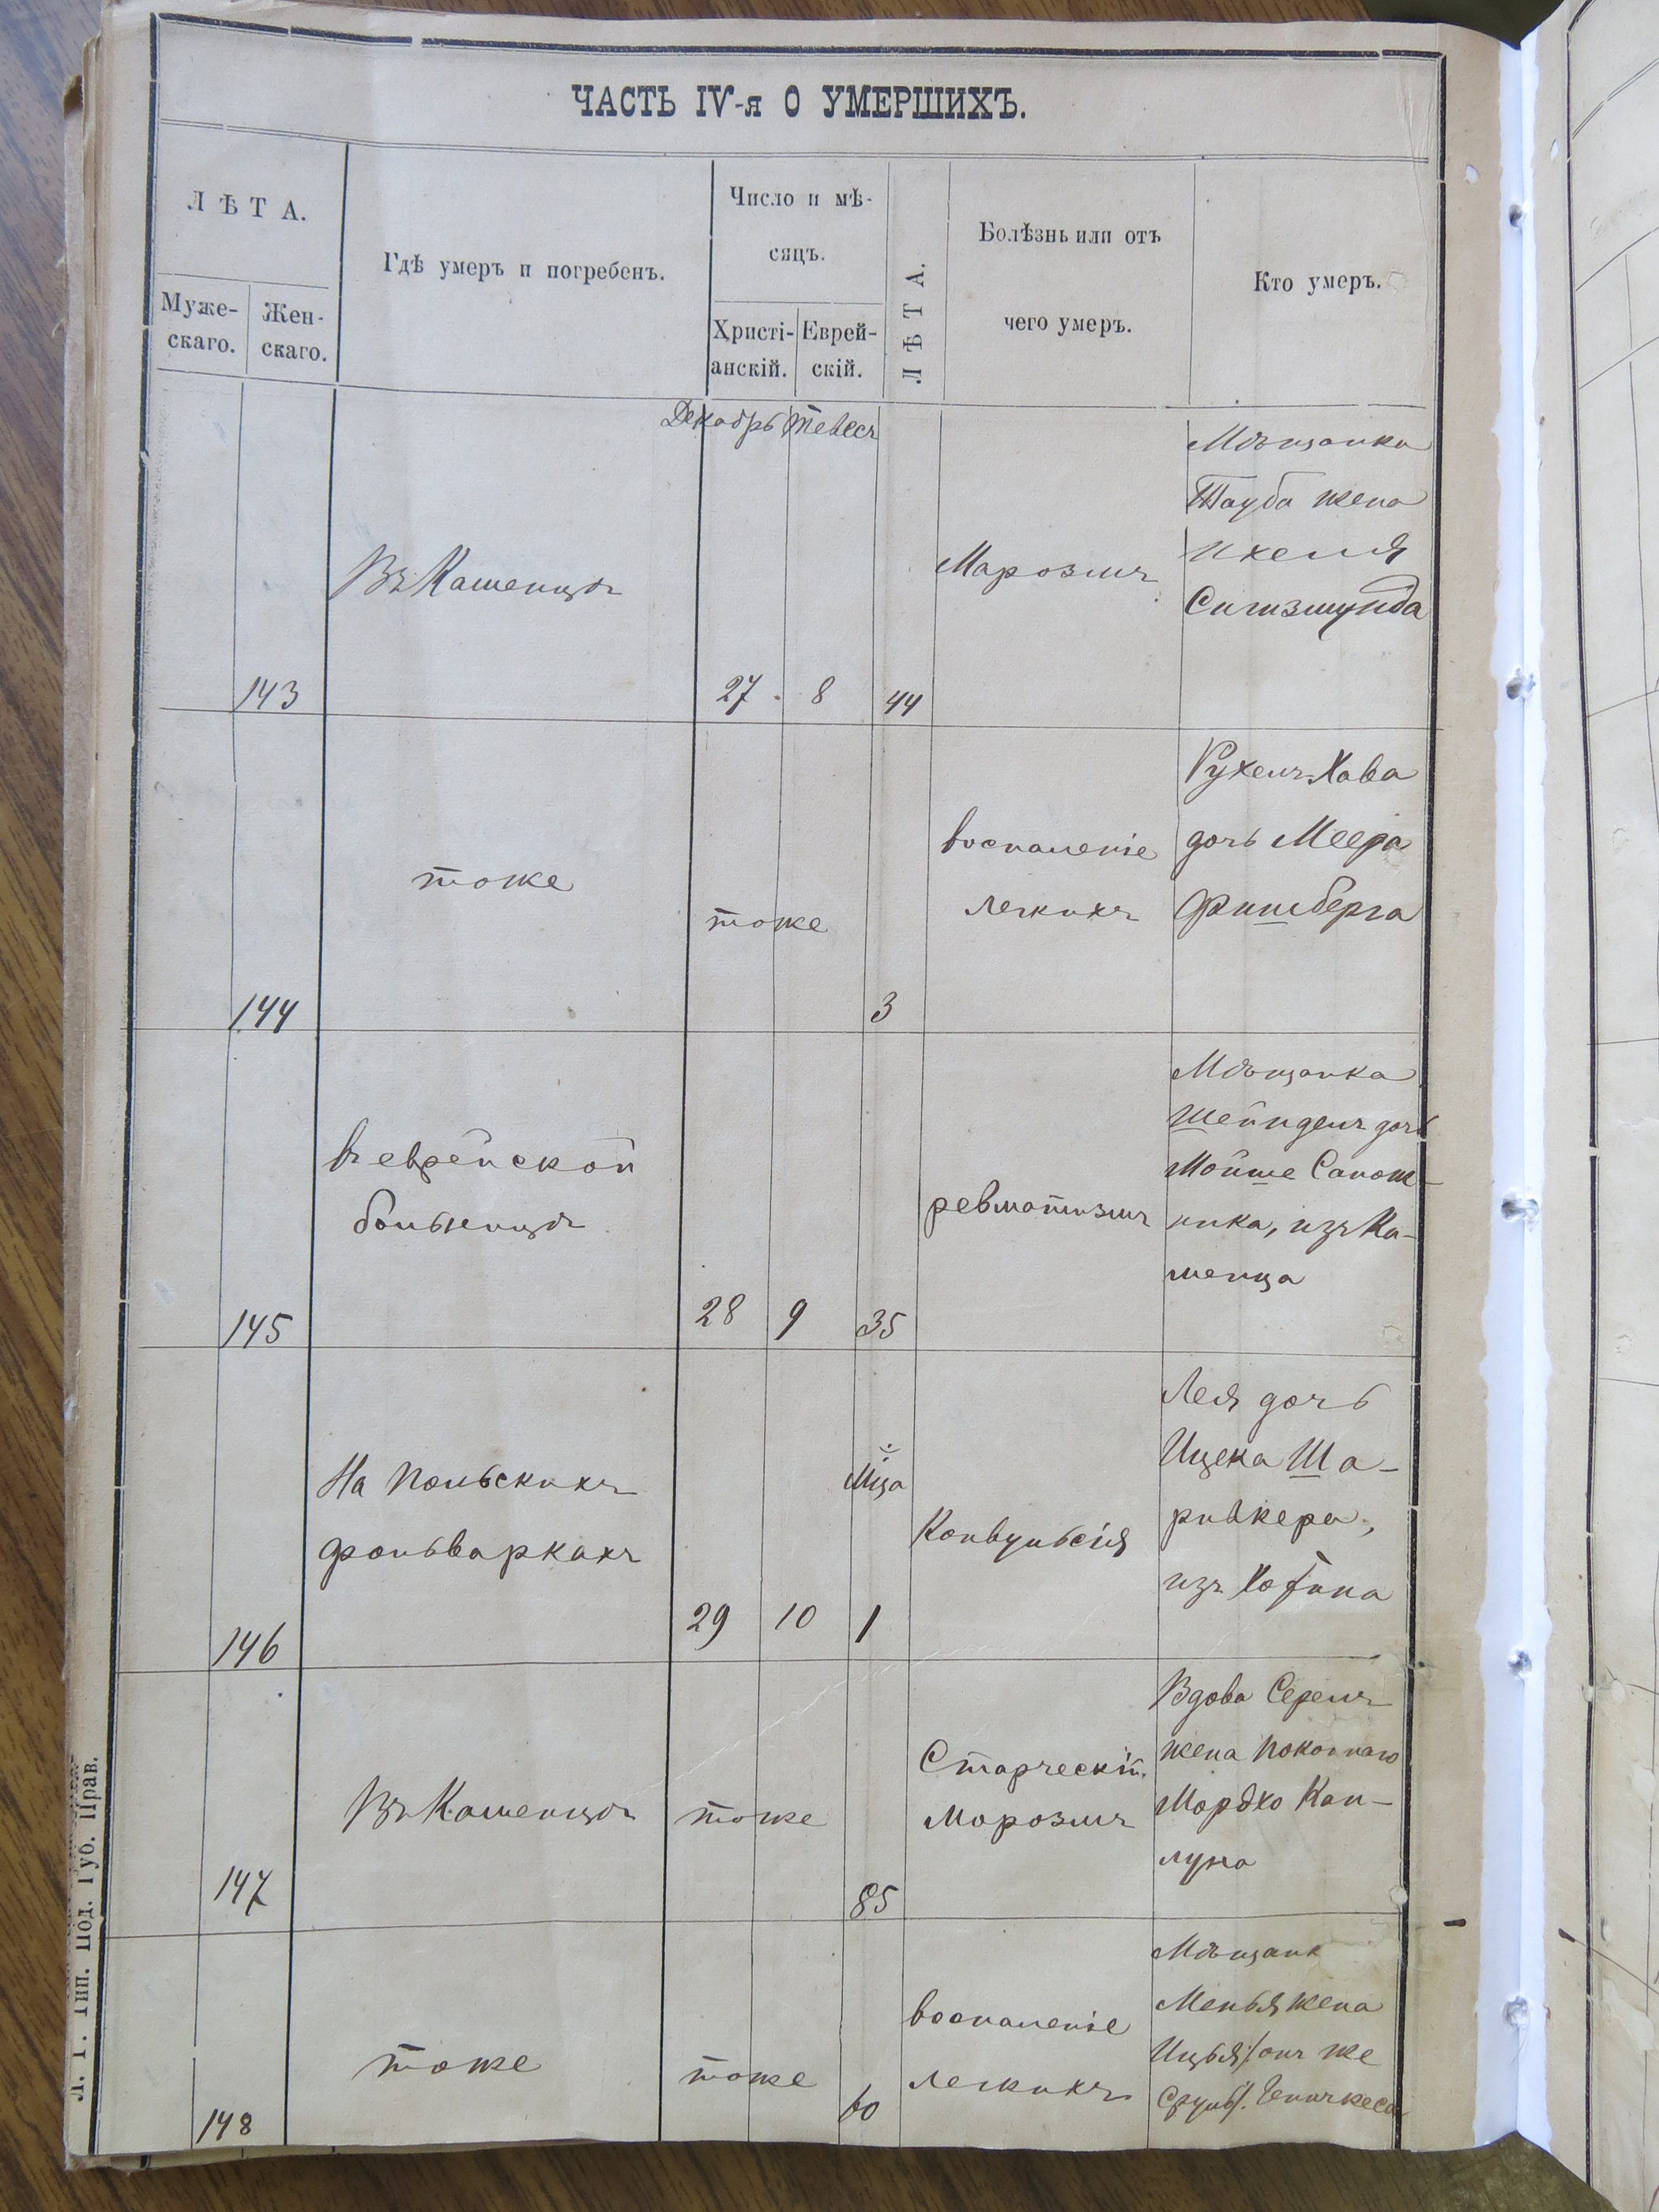 ЧАСТЬ IV-я О УМЕРШИХЪ.
ЛѢТА.
Муже-
скаго.
Жен-
скаго.
Гдѣ умеръ и погребенъ.
Число и мѣ-
сяцъ.
Христі-
анскій.
Еврей-
скій.
ЛѢТА.
Болѣзнь или отъ
чего умеръ.
Кто умеръ.
Декабрь Тевесъ
143
Въ Каменцѣ
27
8
44
Марозмъ
Мѣщанка
Тауба жена
Ихеля
Сигизмунда
144
тоже
тоже
3
воспаленіе
легкихъ
Рухель Хава
дочь Меера
Фишберга
145
въ еврейской
больницѣ
28
9
35
ревматизмъ
Мѣщанка
Шейндель дочь
Мойше Сапож-
ника, изъ Ка-
менца
146
На Польскихъ
фольваркахъ
29
10
Мца
1
Конвульсія
Лея дочь
Ицека Ша-
ривкера,
изъ Хотина
147
Въ Каменцѣ
тоже
85
Старческій
Морозмъ
Вдова Серель
жена покойнаго
Мордхо Кап-
луна
148
тоже
тоже
60
воспаленіе
легкихъ
Мѣщанк
Менья жена
онъ же
Сруль
Л. І. Тип. Под. Губ. Прав.